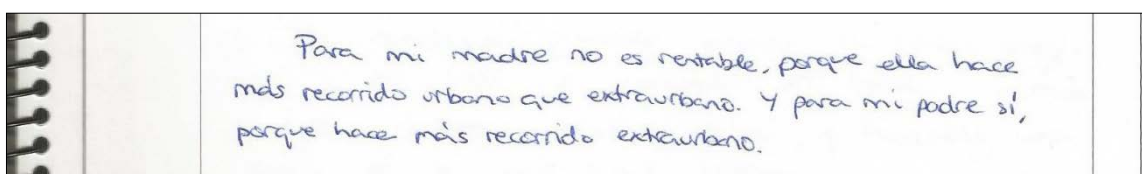 Para mi madre no es rentable, porque ella hace
más recorrido urbano que extraurbano. Y para mi padre sí,
porque hace más recorrido extraurbano.